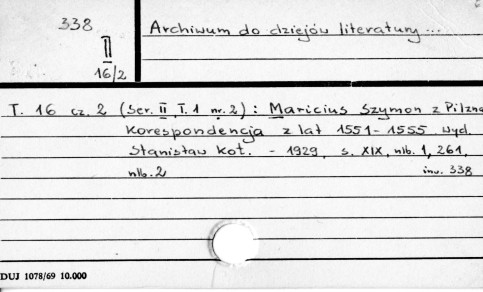 338
II
16/2
Archiwum do dziejów literatury...
T. 16 cz. 2 (Ser. II T. 1 nr. 2) : Maricius Szymon z Pilzna
Korespondencja z lat 1551-1555 wyd.
Stanisław Kot. - 1929, s. XIX, nlb. 1, 261,
nlb. 2 inv. 338
DUJ 1078/69 10.000